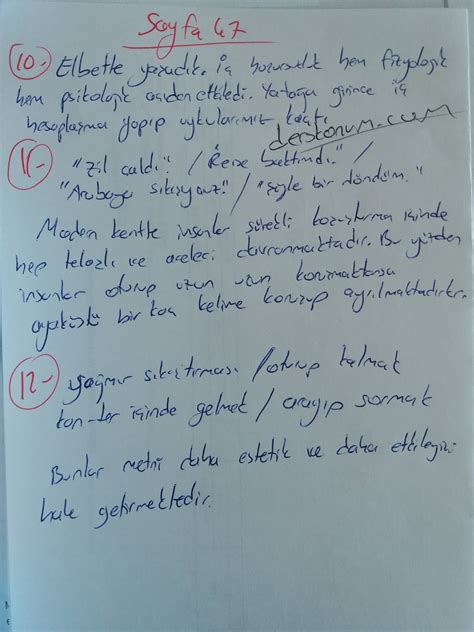 Sayfa 47
10- Elbette yaşadık. İç huzursuzluk hem fizyolojik
hem psikolojik açıdan etkiledi. Yatağa girince iç
hesaplaşma yapıp uykularımız kaçtı.
derskonum.com
11- "Zil çaldı." / "Reise baktımdı." /
"Arabaya sıkışıyoruz." / "şöyle bir döndüm."
Modern kentte insanlar sürekli koşuşturma içinde
hep telaşlı ve aceleci davranmaktadır. Bu yüzden
insanlar oturup uzun uzun konuşmaktansa
ayaküstü bir kaç kelime konuşup ayrılmaktadırlar.
12- yağmur sıkıştırması / oturup kalmak
kan-ter içinde gelmek / arayıp sormak
Bunlar metni daha estetik ve daha etkileyici
hale getirmektedir.